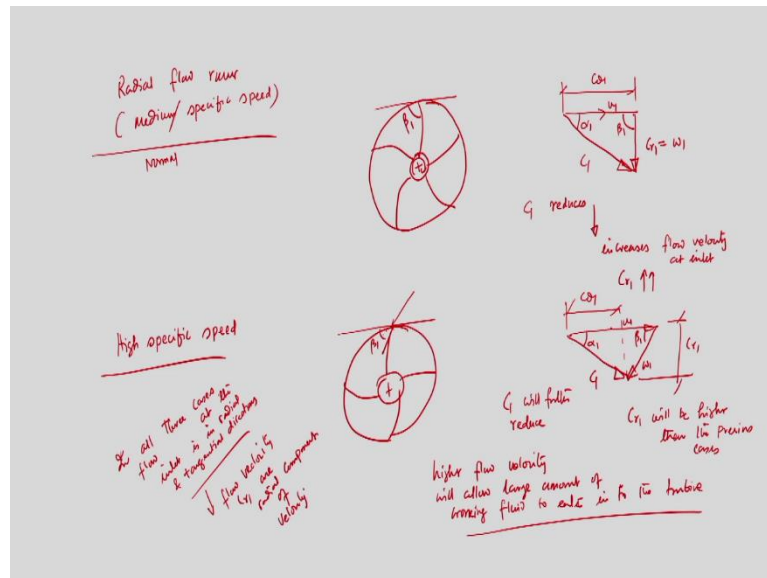 Radial flow runner
(Medium/specific speed)
Normal
β1
cθ1
u1
α1
β1
C1
Cr1 = w1
C1 reduces
increases flow velocity
at inlet
Cr1 ↑↑
High specific speed
β1
cθ1
u1
α1
β1
C1
w1
Cr1
C1 will further
reduce
Cr1 will be higher
then the previous
cases
In all three cases
flow at the
inlet is in radial
& tangential directions
flow velocity
Cr1 are
radial component
of
velocity
higher flow velocity
will allow large amount of
working fluid to enter in to the turbine